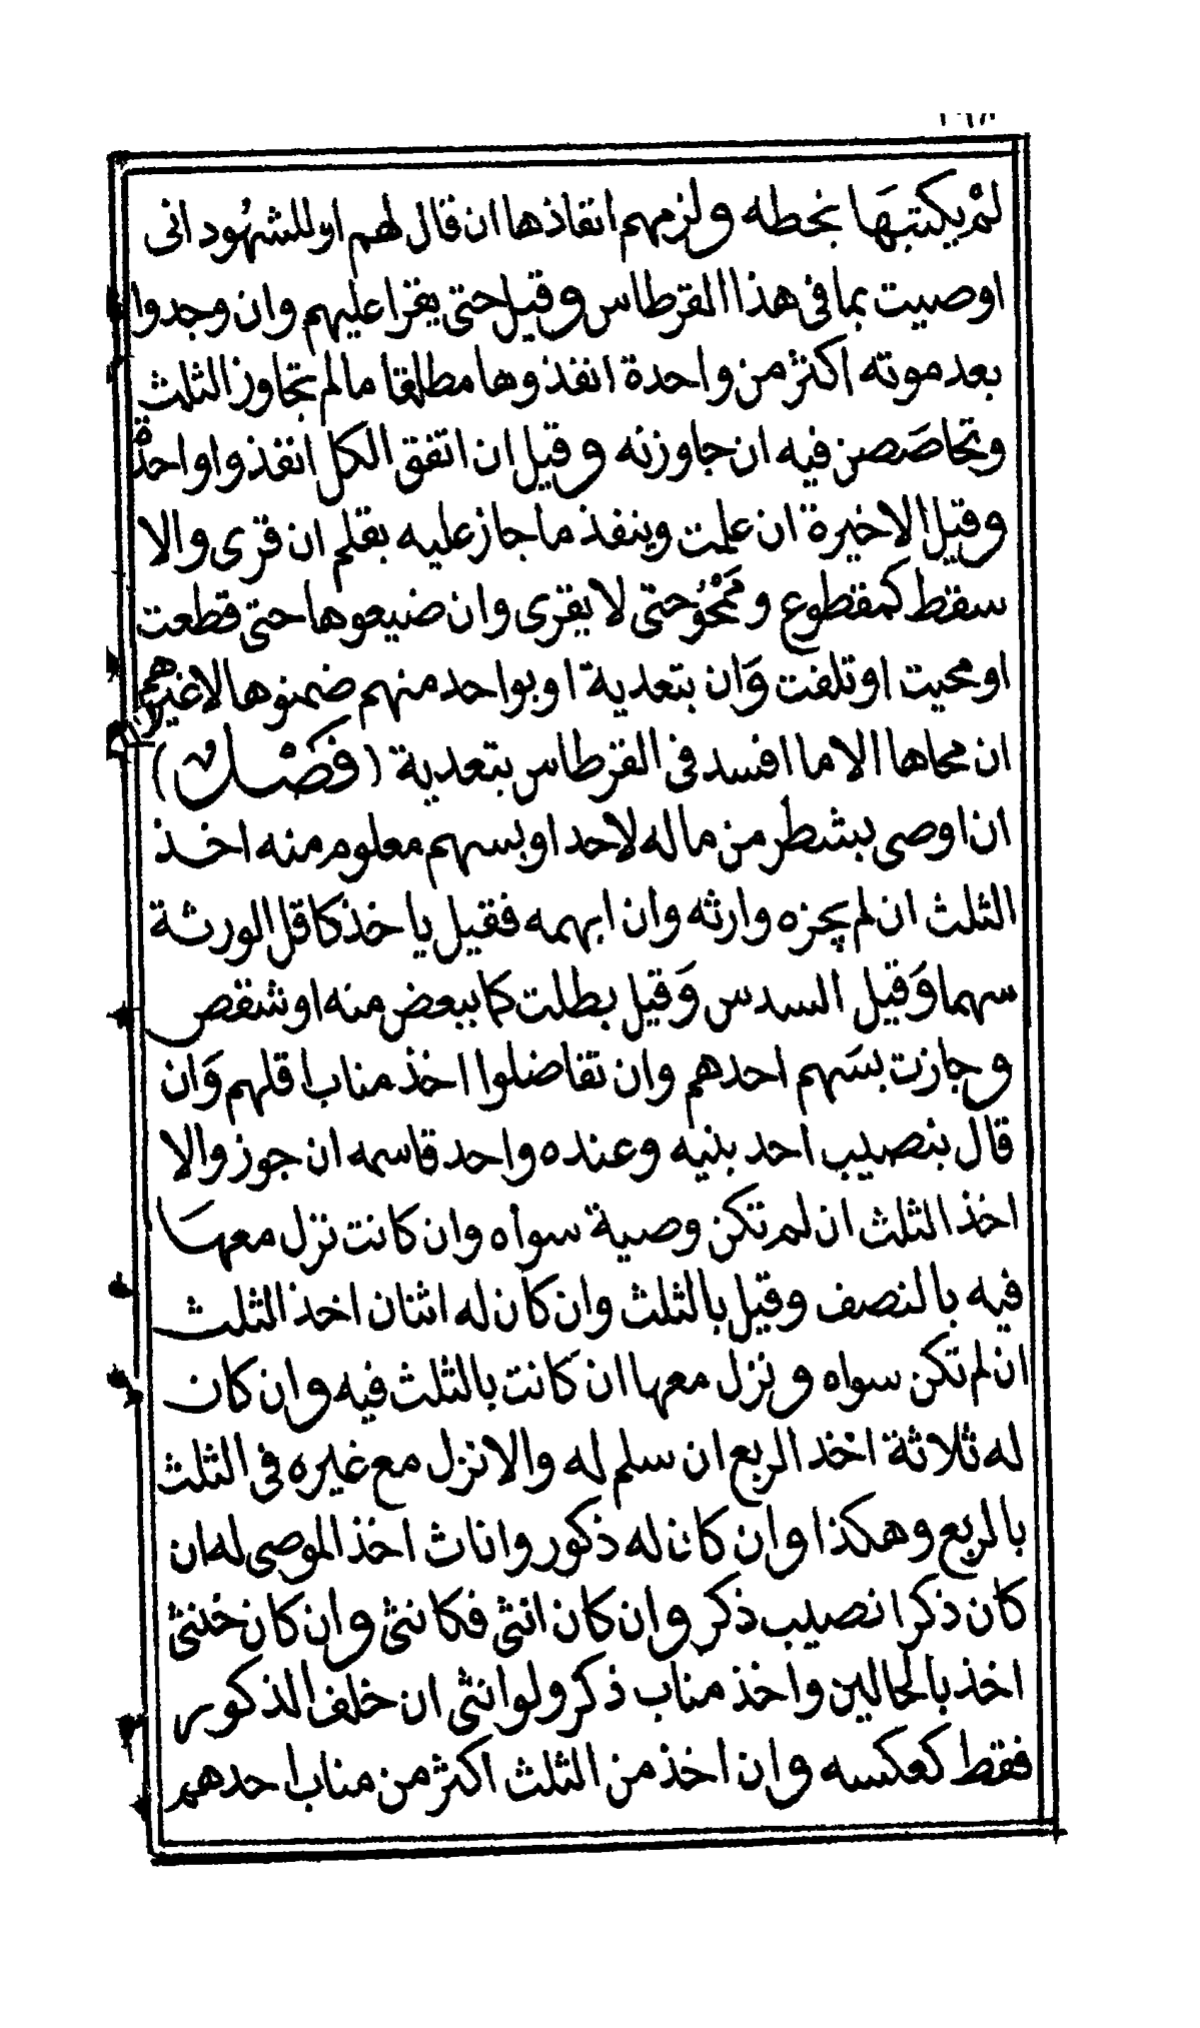 لم يكتبها بخطه ولزمهم انفاذها ان قال لهم او للشهود انى
اوصيت بما فى هذا القرطاس وقيل حتى يقرا عليهم وان وجدوا
بعد موته اكثر من واحدة انفذوها مطلقا ما لم تجاوز الثلث
وتحاصصن فيه ان جاوزنه وقيل ان اتفق الكل انفذوا واحدة
وقيل الاخيرة ان علمت وينفذ ما جاز عليه بقلم ان قرى والا
سقط كمقطوع وممحو حتى لا يقرى وان ضيعوها حتى قطعت
او محيت او تلفت وان بتعدية او بواحد منهم ضمنوها لا غيرهم
ان محاها الا ما افسد فى القرطاس بتعدية (فصل)
ان اوصى بشطر من ماله لاحد او بسهم معلوم منه اخذ
الثلث ان لم يجزه وارثه وان ابهمه فقيل ياخذ كاقل الورثة
سهما وقيل السدس وقيل بطلت كما ببعض منه او شقص
وجازت بسهم احدهم وان تفاضلوا اخذ مناب اقلهم وان
قال بنصيب احد بنيه وعنده واحد قاسمه ان جوز والا
اخذ الثلث ان لم تكن وصية سواه وان كانت نزل معها
فيه بالنصف وقيل بالثلث وان كان له اثنان اخذ الثلث
ان لم تكن سواه ونزل معها ان كانت بالثلث فيه وان كان
له ثلاثة اخذ الربع ان سلم له والا نزل مع غيره فى الثلث
بالربع وهكذا وان كان له ذكور واناث اخذ الموصى له ان
كان ذكرا نصيب ذكر وان كان انثى فكانثى وان كان خنثى
اخذ بالحالين واخذ مناب ذكر ولو انثى ان خلف الذكور
فقط كعكسه وان اخذ من الثلث اكثر من مناب احدهم